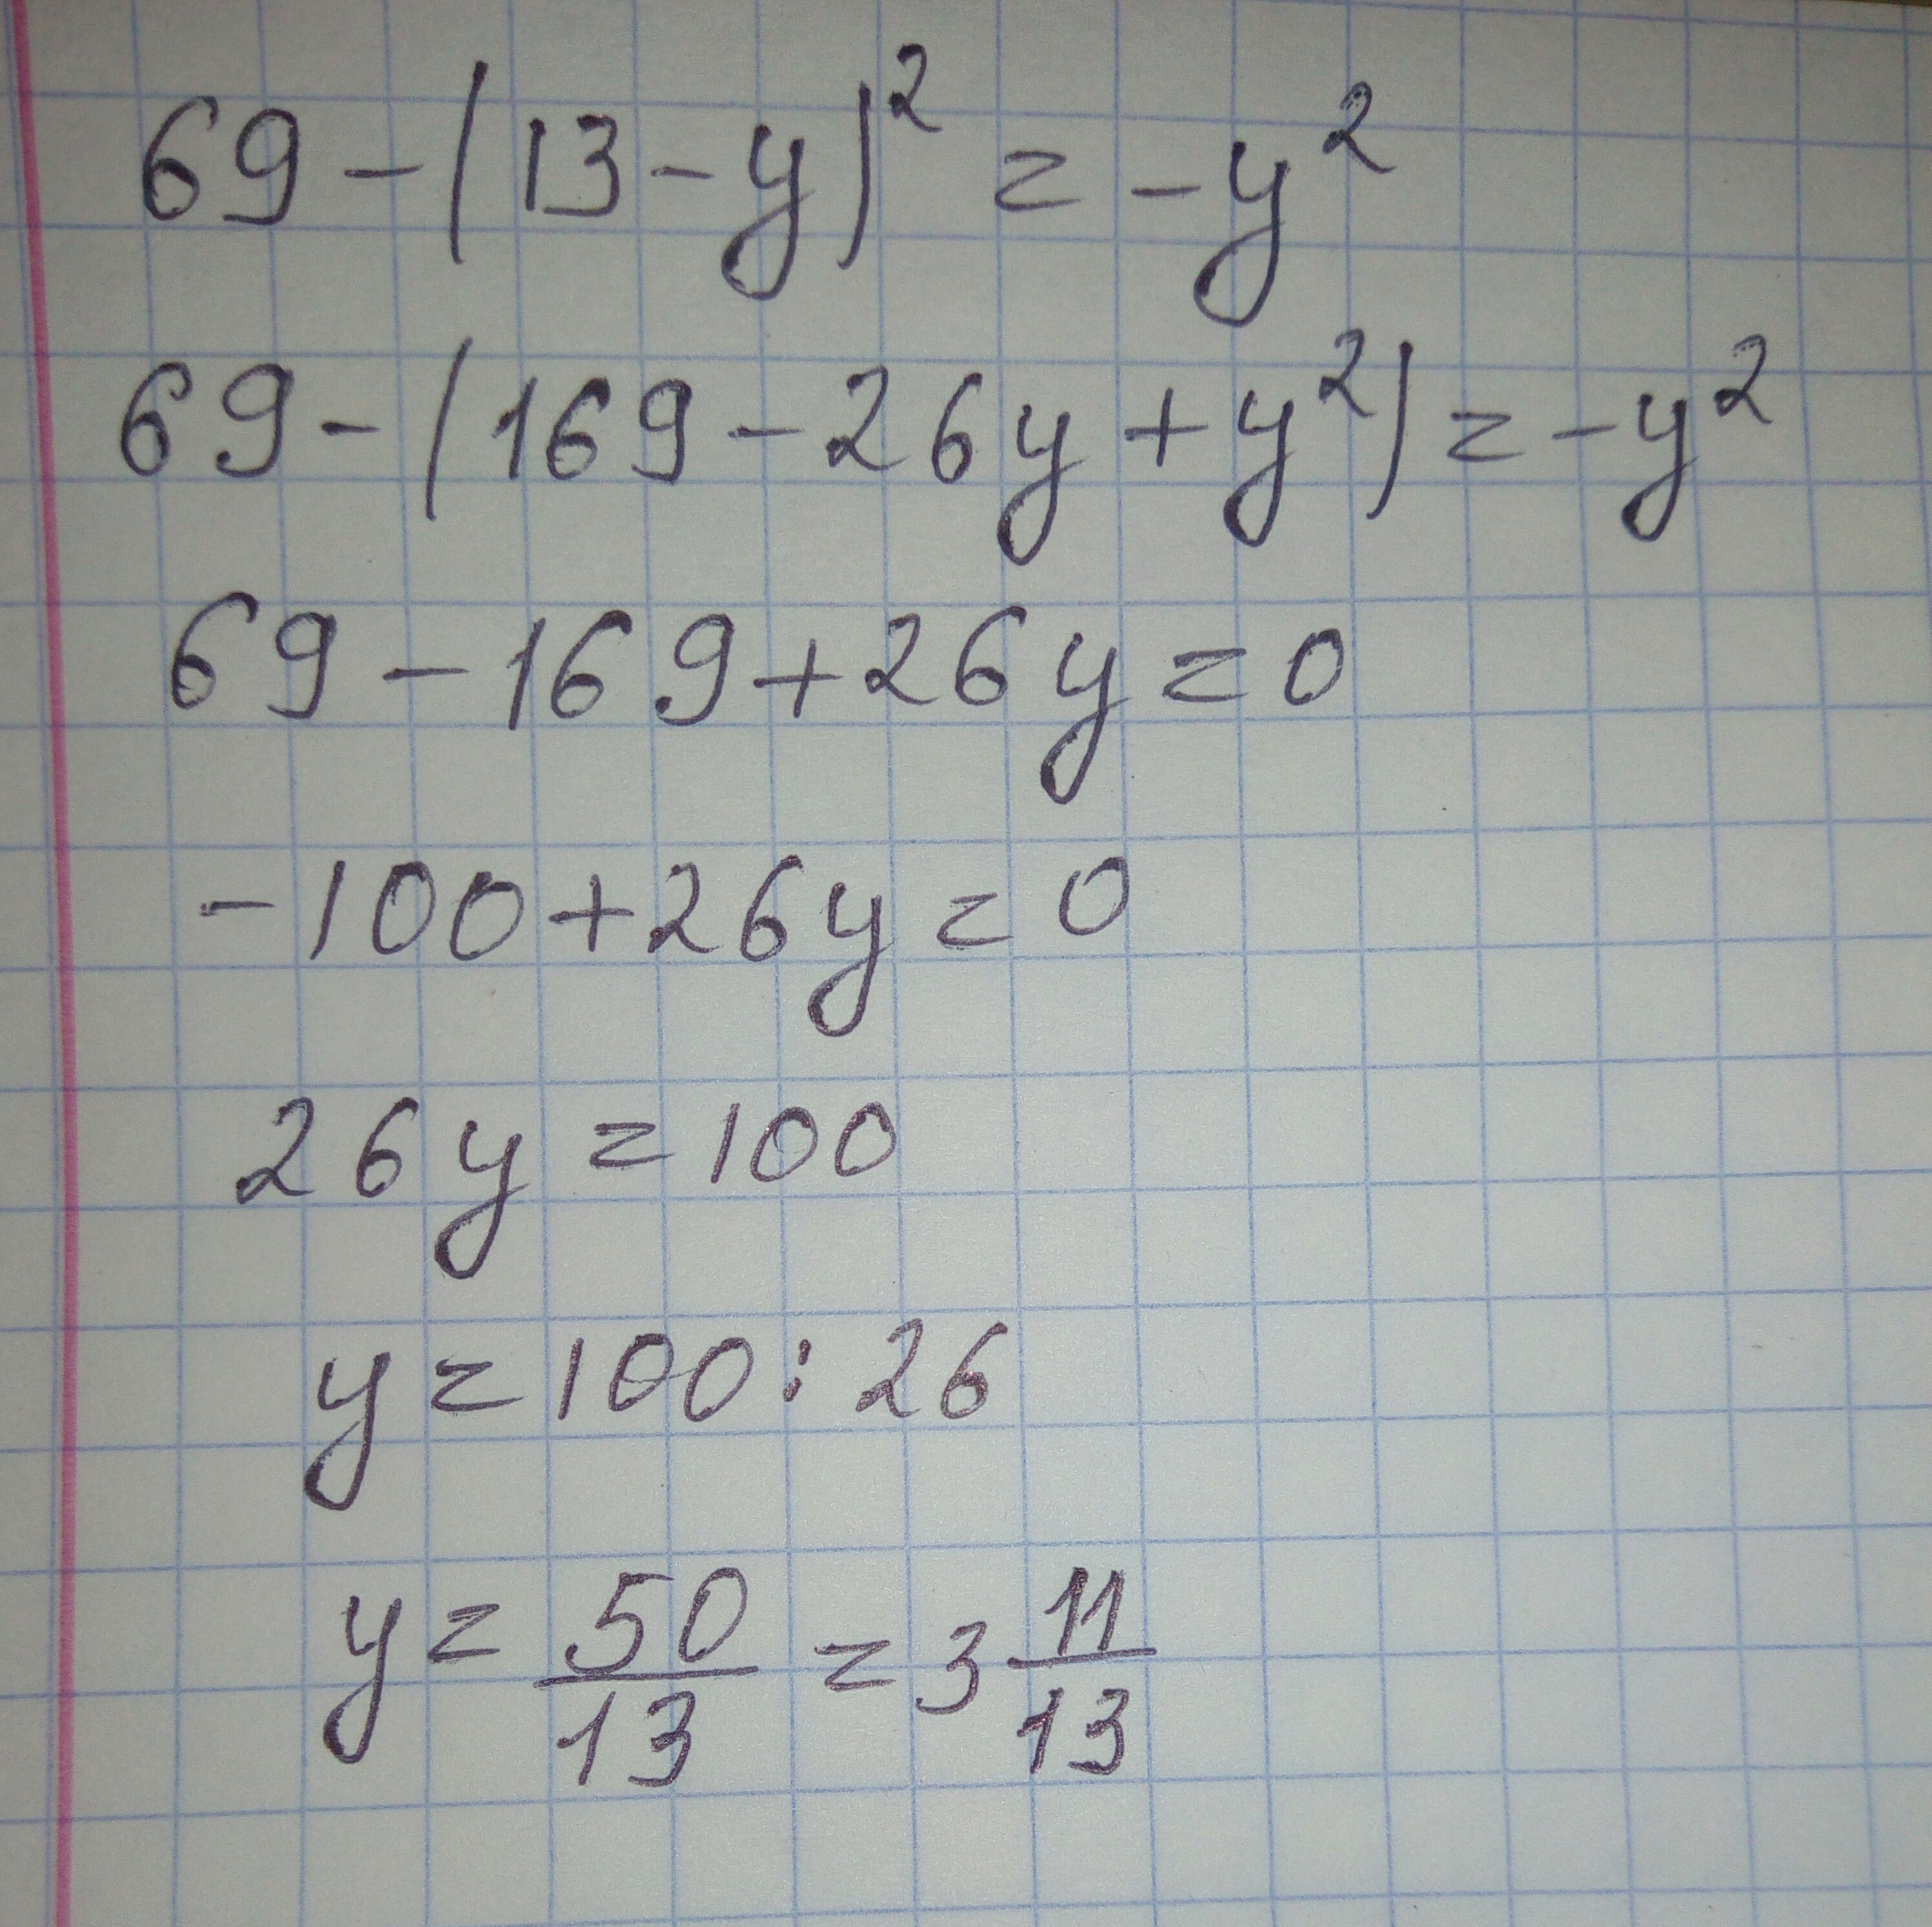 69-(13-y)²=-y²
69-(169-26y+y²)=-y²
69-169+26y=0
-100+26y=0
26y=100
y=100:26
y=50/13=3 11/13